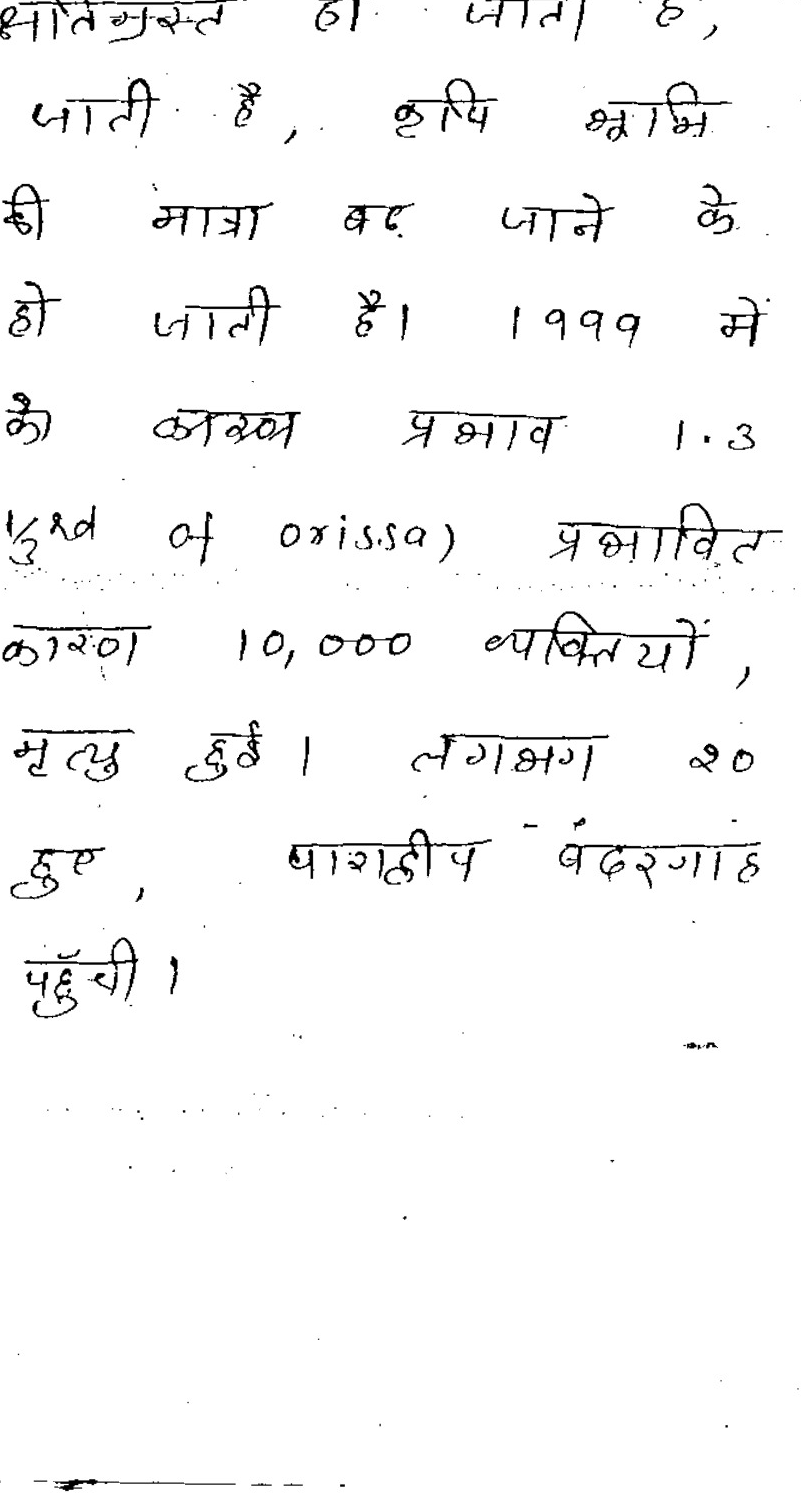 क्षतिग्रस्त हो जाता है,
जाती है, कृषि भूमि
की मात्रा बढ़ जाने के
हो जाती है। 1999 में
के कारण प्रभाव 1.3
1/3rd of orissa) प्रभावित
कारण 10,000 व्यक्तियों,
मृत्यु हुई। लगभग २०
हुए, पाराद्वीप बंदरगाह
पहुँची।